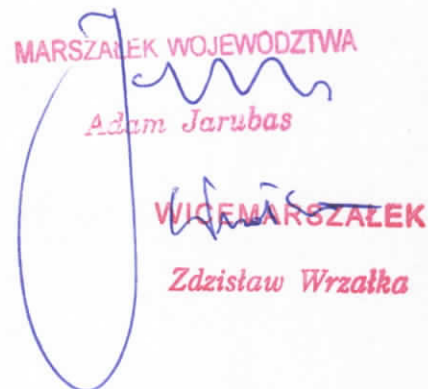 MARSZAŁEK WOJEWÓDZTWA
Adam Jarubas
WICEMARSZAŁEK
Zdzisław Wrzałka